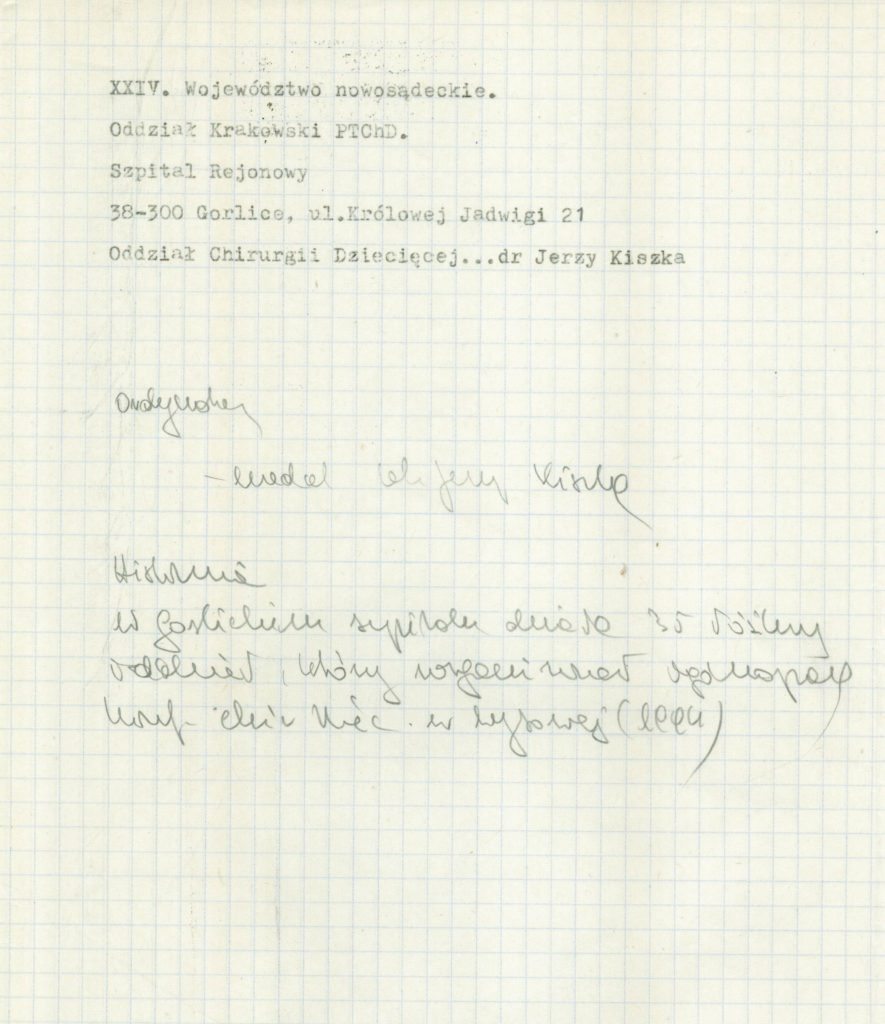 XXIV. Województwo nowosądeckie.
Oddział Krakowski PTChD.
Szpital Rejonowy
38-300 Gorlice, ul.Królowej Jadwigi 21
Oddział Chirurgii Dziecięcej...dr Jerzy Kiszka
Ordynator
- Jerzy Kiszka
Historia
w gorlickim szpitalu działa 35 łóżkowy
oddział, który organizował ogólnopol
konf. chir dziec. w Wysowej (1994)